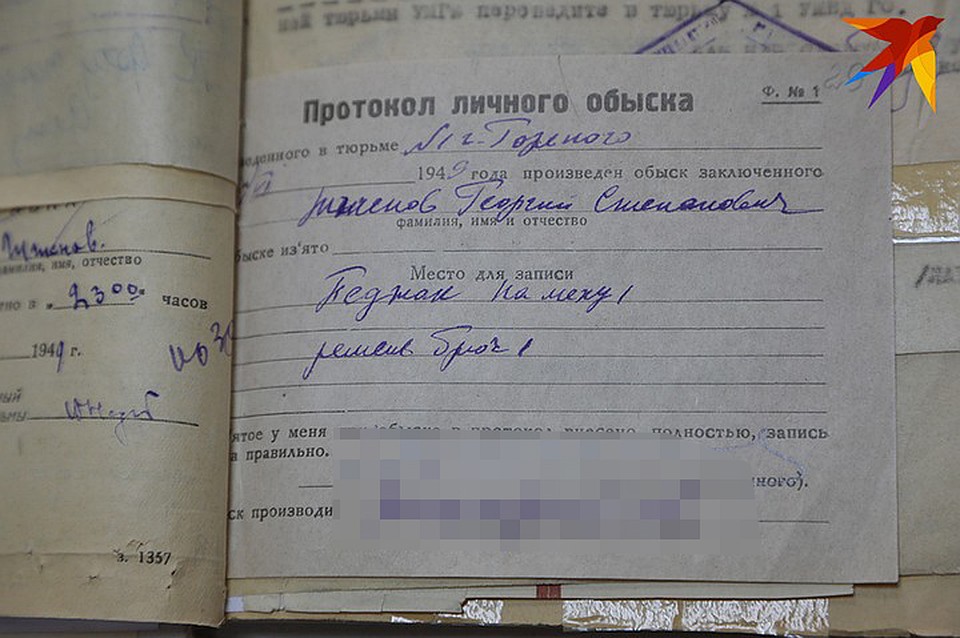 ней тюрьмы УМГБ переведите в тюрьму № 1 УМВД ГО.
Протокол личного обыска
Ф. № 1
веденного в тюрьме №1 г. Горького
1949 года произведен обыск заключенного
Жженов Георгий Степанович
фамилия, имя и отчество
быске из'ято
Место для записи
Педжак на меху 1
ремень брюч 1
ятое у меня при обыске в протокол внесено полностью, запись
а правильно.
нного).
ск производи
Жженов.
фамилия, имя, отчество
тно в "23 00" часов
1949 г.
ный
ьмы
з. 1357